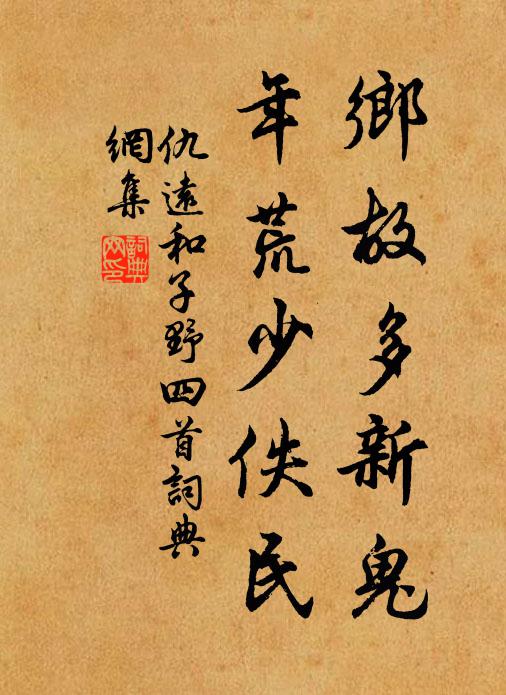 鄉故多新鬼
年荒少佚民
仇遠和子野四首詞典
網集
詞典
网印